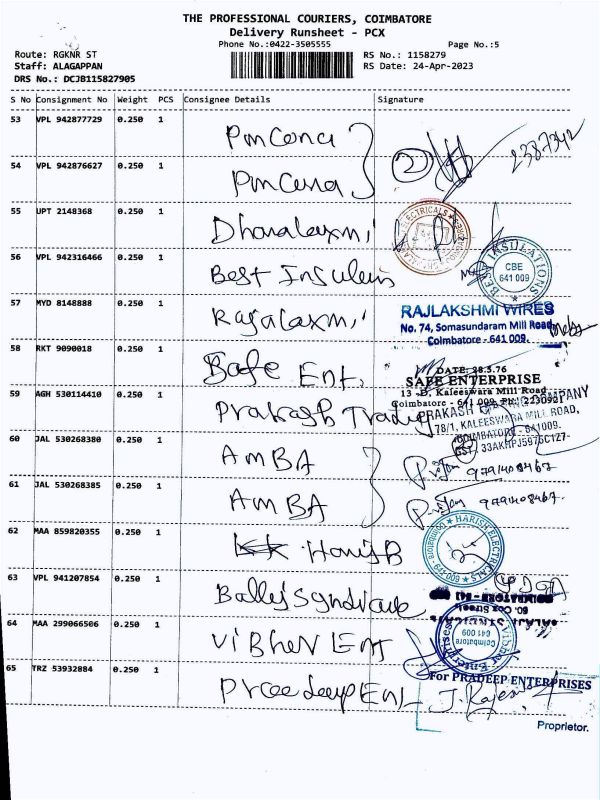 THE PROFESSIONAL COURIERS, COIMBATORE
Delivery Runsheet - PCX
Phone No.:0422-3505555
Page No.:5
Route: RGKNR ST
Staff: ALAGAPPAN
DRS No.: DCJB115827905
RS No.: 1158279
RS Date: 24-Apr-2023
S No Consignment No Weight PCS Consignee Details Signature
53 VPL 942877729 0.250 1 Pmcona
2387342
54 VPL 942876627 0.250 1 Pmcona
2
55 UPT 2148368 0.250 1 Dhanalaxmi
ELECTRICALS
56 VPL 942316466 0.250 1 Best Insulens
BEST INSULATIONS
CBE
641 009
57 MYD 8148888 0.250 1 Rajalaxmi
RAJLAKSHMI WIRES
No. 74, Somasundaram Mill Road,
Coimbatore - 641 009.
58 RKT 9090018 0.250 1 Safe Ent.
DATE: 28.5.76
SAFE ENTERPRISE
13-D, Kaleeswara Mill Road,
Coimbatore - 641 009. PH: 2230921
59 AGH 530114410 0.250 1 Prakash Trading
PRAKASH COMPANY
78/1, KALEESWARA MILL ROAD,
COIMBATORE - 641009.
GST: 33AKHPJ5976C1Z7
60 JAL 530268380 0.250 1 AMBA
9791408467
61 JAL 530268385 0.250 1 AMBA
9791408467
62 MAA 859820355 0.250 1 Harish
HARISH ELECTRICALS
63 VPL 941207854 0.250 1 Balleji Syndicate
60, Cox Street
64 MAA 299066506 0.250 1 Vibhav Ent
Vibhav Enterprises
Coimbatore
641 009
65 TRZ 53932884 0.250 1 Pradeep Ent
For PRADEEP ENTERPRISES
Proprietor.